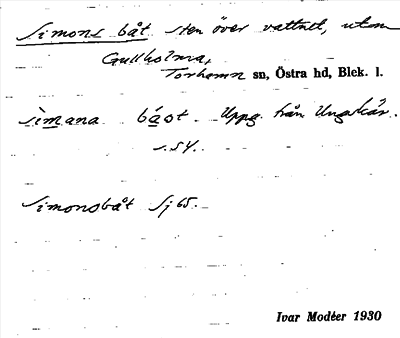 Simons båt sten över vattnet, utom
Gullholma,
Torhamn sn, Östra hd, Blek. l.
simana båot. Uppg. från Ungskär.
s. 54.
Simonsbåt Sj 65.
Ivar Modéer 1930